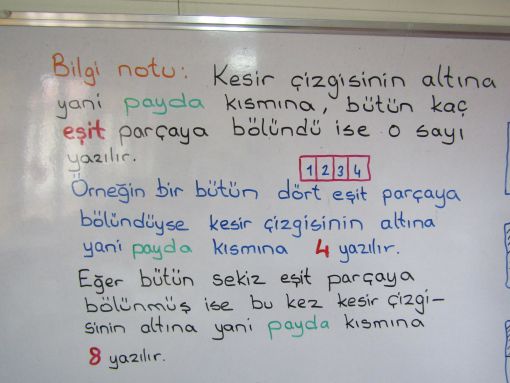 Bilgi notu: Kesir çizgisinin altına
yani payda kısmına, bütün kaç
eşit parçaya bölündü ise o sayı
yazılır.
1 2 3 4
Örneğin bir bütün dört eşit parçaya
bölündüyse kesir çizgisinin altına
yani payda kısmına 4 yazılır.
Eğer bütün sekiz eşit parçaya
bölünmüş ise bu kez kesir çizgi-
sinin altına yani payda kısmına
8 yazılır.